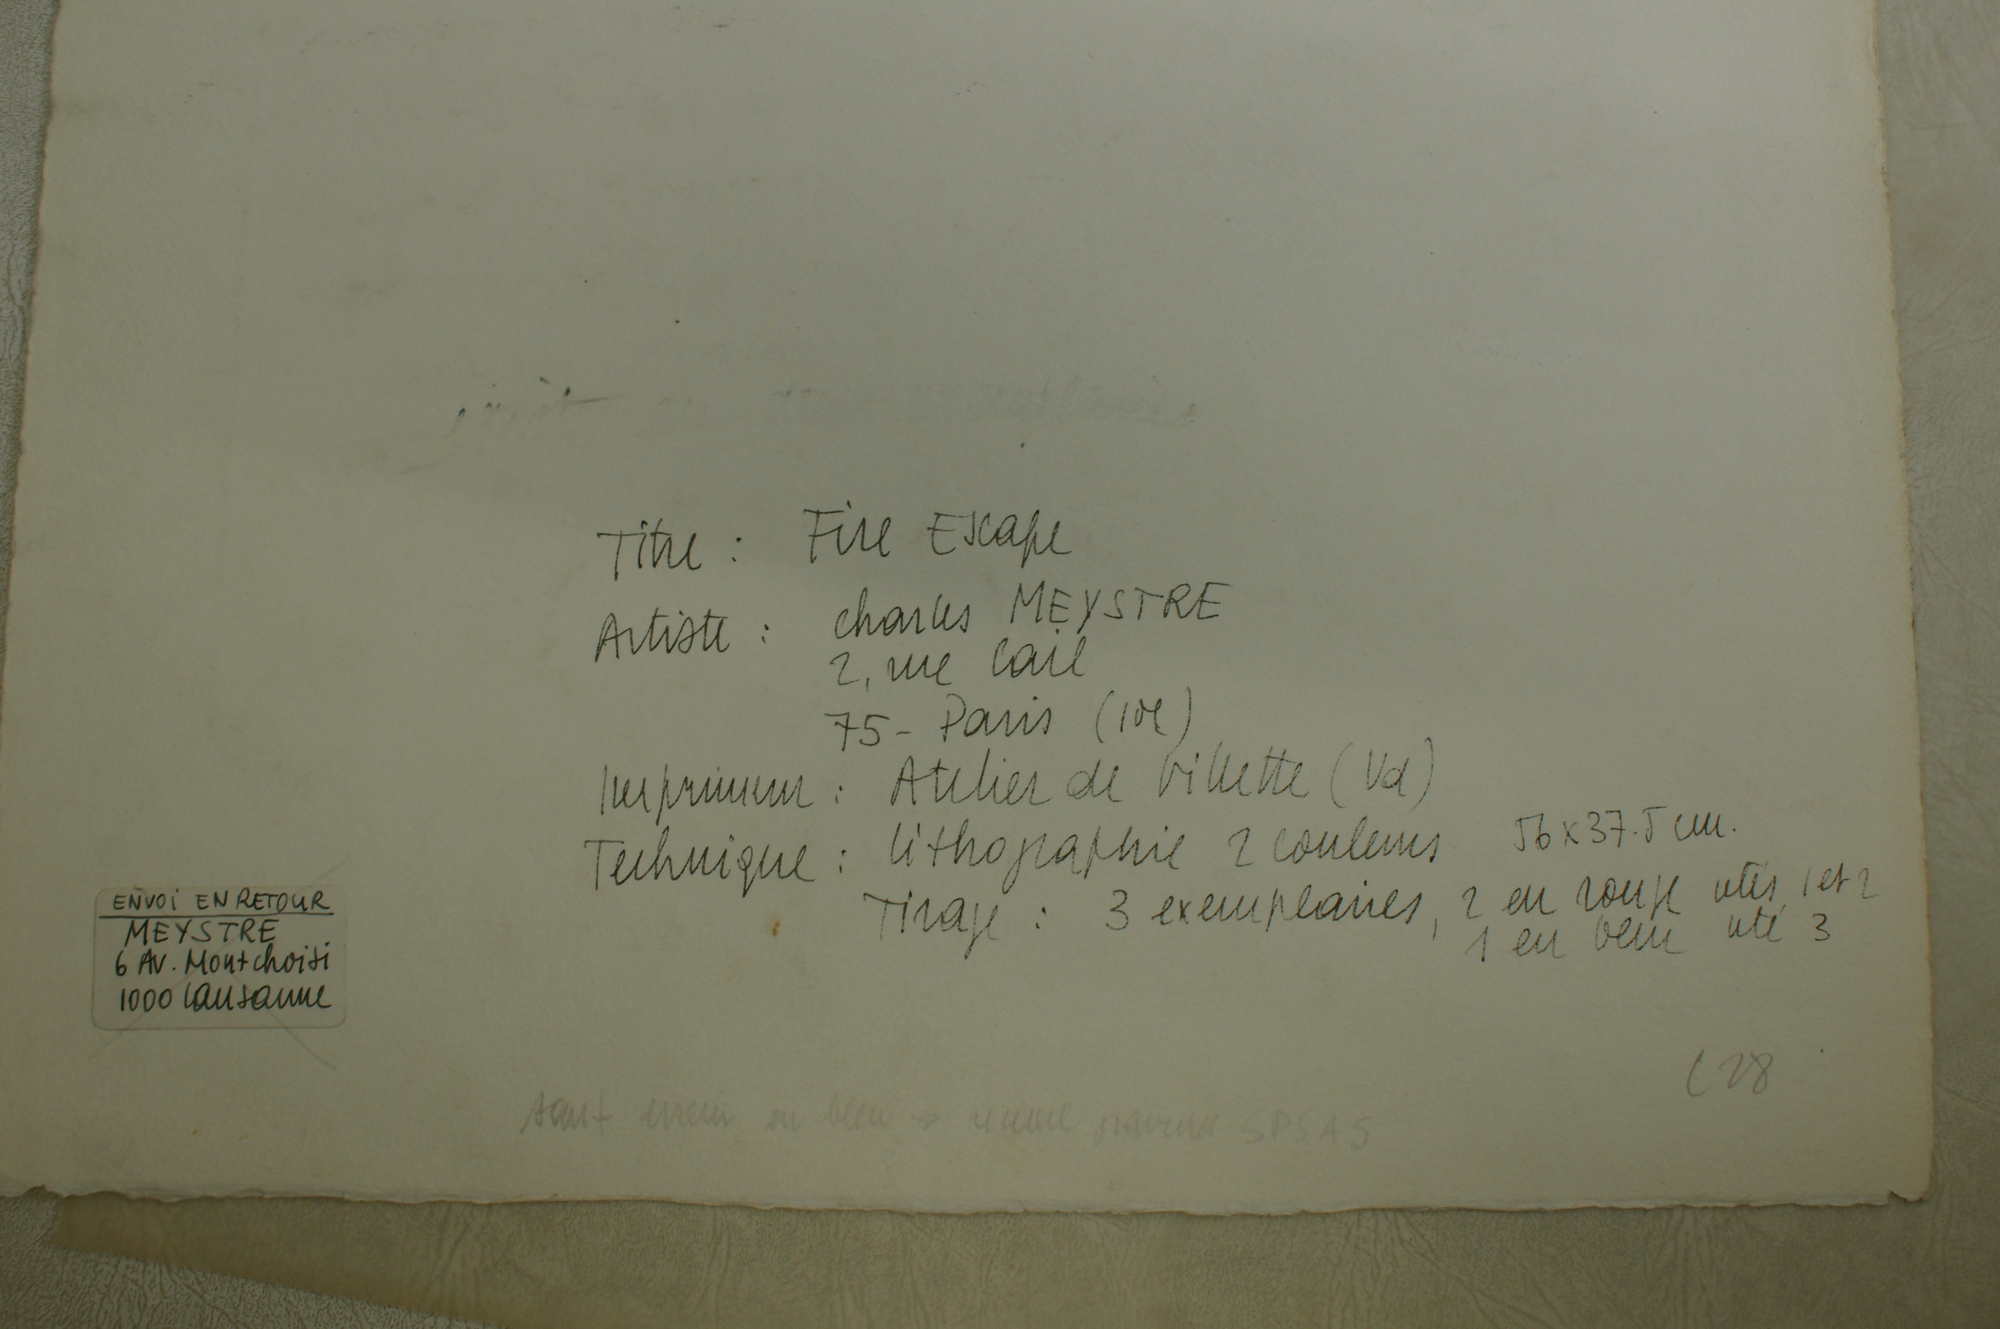 Titre : Fire Escape
Artiste : Charles MEYSTRE
2, rue Cail
75 - Paris (10e)
Imprimeur : Atelier de Villette (Vd)
Technique : lithographie 2 couleurs 56x37.5 cm.
Tirage : 3 exemplaires, 2 en rouge 1 et 2
1 en bleu 3
ENVOI EN RETOUR
MEYSTRE
6 Av. Montchoisi
1000 Lausanne
28
en bleu → SPSAS